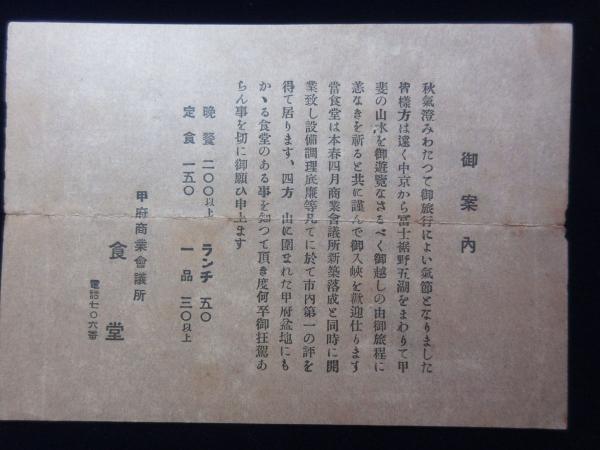 御案內
秋氣澄みわたつて御旅行によい氣節となりました
皆樣方は遠く中京から冨士裾野五湖をまわりて甲
斐の山水を御遊覽なさるべく御越しの由御旅程に
恙なきを祈ると共に謹んで御入峽を歡迎仕ります
當食堂は本春四月商業會議所新築落成と同時に開
業致し設備調理底廉等凡てに於て市內第一の評を
得て居ります、四方 山に圍まれた甲府盆地にも
かゝる食堂のある事を知つて頂き度何卒御抂駕あ
らん事を切に御願ひ申上ます
晩餐 二〇〇以上 ランチ 五〇
定食 一五〇 一品 三〇以上
甲府商業會議所
食堂
電話七〇六番